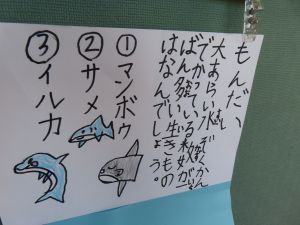 もんだい
大あらい水ぞくかん
でかっている
ばん 生きもの
はなんでしょう。
①マンボウ
②サメ
③イルカ